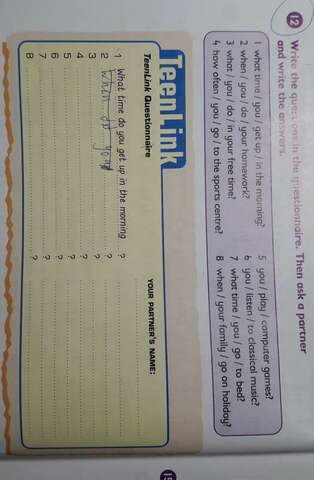 12 Write the questions in the questionnaire. Then ask a partner
and write the answers.
1 what time / you / get up / in the morning?
2 when / you / do / your homework?
3 what / you / do / in your free time?
4 how often / you / go / to the sports centre?
5 you / play / computer games?
6 you / listen / to classical music?
7 what time / you / go / to bed?
8 when / your family / go on holiday?
TeenLink
TeenLink Questionnaire
YOUR PARTNER'S NAME:
1 What time do you get up in the morning ?
2 when do you ?
3 ?
4 ?
5 ?
6 ?
7 ?
8 ?